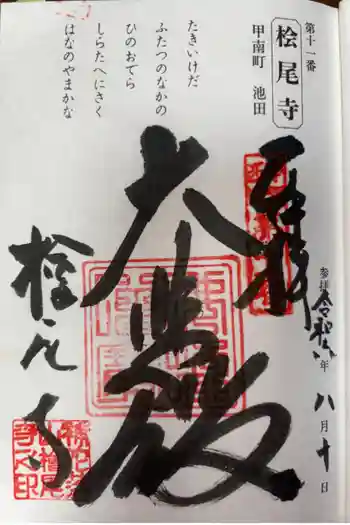 第十一番
桧尾寺
甲南町 池田
たきいけだ
ふたつのなかの
ひのおてら
しらたへにさく
はなのやまかな
奉拝
大悲殿
桧尾寺
参拝 令和六年 八月十日